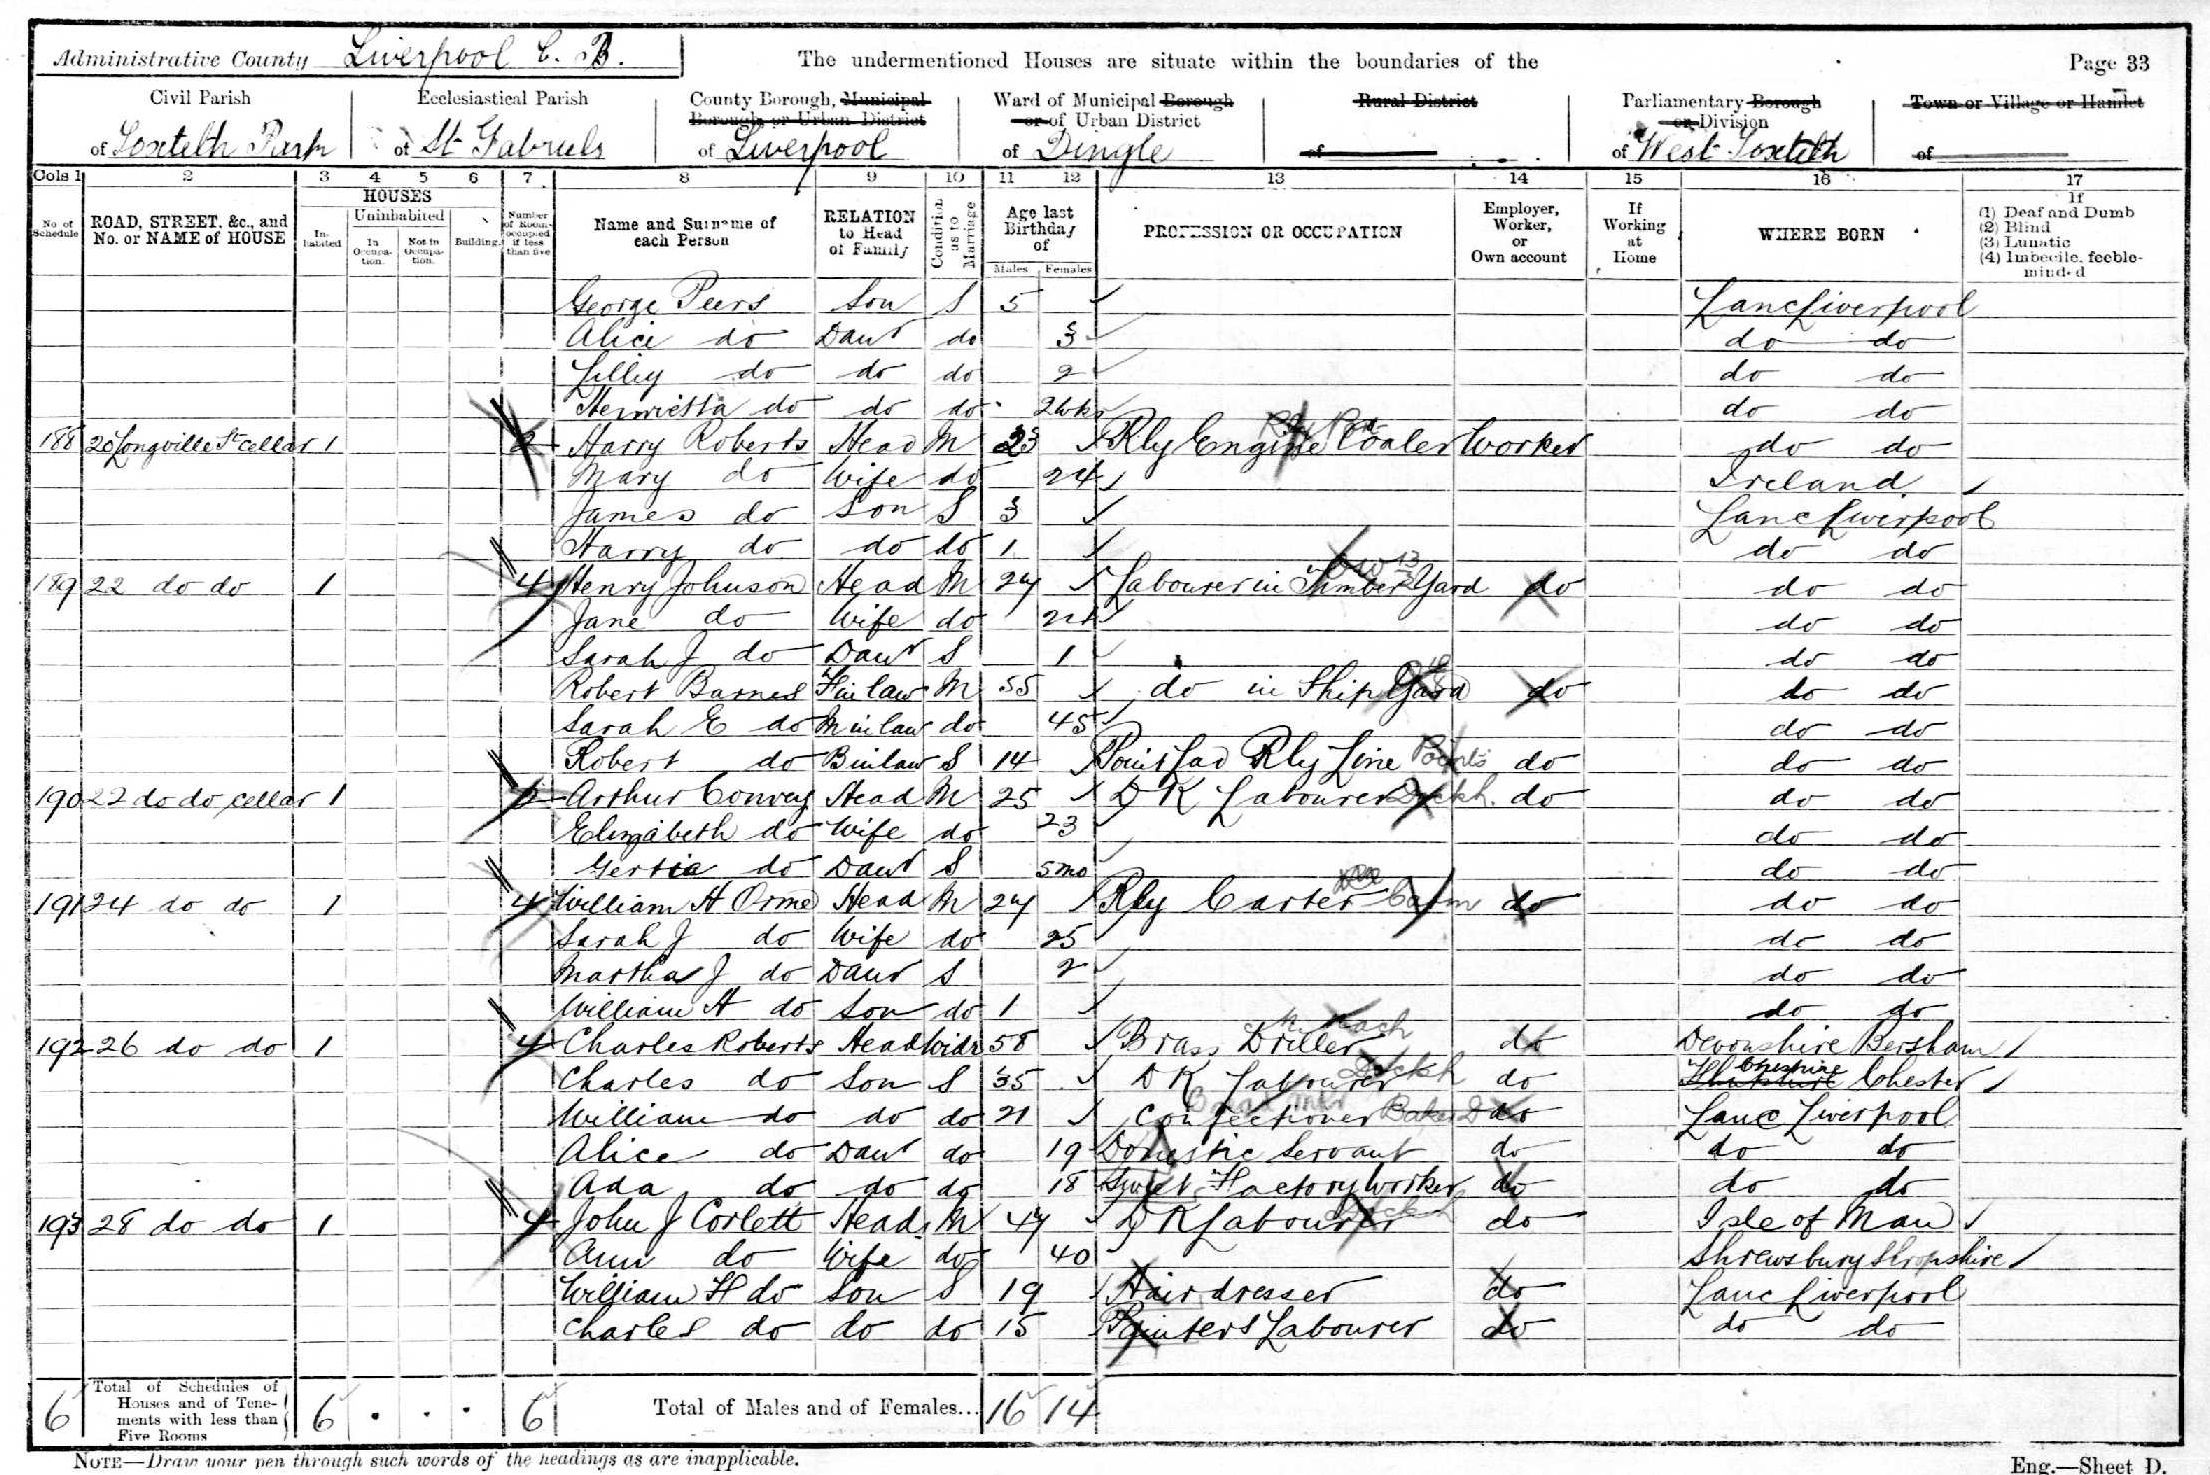 Administrative County Liverpool C. B. The undermentioned Houses are situate within the boundaries of the Page 33
Civil Parish of Toxteth Park
Ecclesiastical Parish of St Gabriels
County Borough, Municipal Borough or Urban District of Liverpool
Ward of Municipal Borough or of Urban District of Dingle
Rural District of
Parliamentary Borough or Division of West Toxteth
Town or Village or Hamlet of
Cols 1 2 3 4 5 6 7 8 9 10 11 12 13 14 15 16 17
No of Schedule
ROAD, STREET, &c., and No. or NAME of HOUSE
HOUSES
Inhabited
Uninhabited
In Occupation.
Not in Occupation.
Building
Number of Rooms occupied if less than five
Name and Surname of each Person
RELATION to Head of Family
Condition as to Marriage
Age last Birthday of
Males Females
PROFESSION OR OCCUPATION
Employer, Worker, or Own account
If Working at Home
WHERE BORN
If
(1) Deaf and Dumb
(2) Blind
(3) Lunatic
(4) Imbecile, feeble-minded
George Peers Son S 5 Lanc Liverpool
Alice do Daur do 3 do do
Lilley do do do 2 do do
Henrietta do do do 2wks do do
188 20 Longville St cellar 1 2 Harry Roberts Head M 23 Rly Engine Coaler Worker do do
Mary do Wife do 24 Ireland
James do Son S 3 Lanc Liverpool
Harry do do do 1 do do
189 22 do do 1 4 Henry Johnson Head M 27 Labourer in Timber Yard do do do
Jane do Wife do 24 do do
Sarah J do Daur S 1 do do
Robert Barnes F in law M 55 do in Ship Yard do do do
Sarah E do M in law do 45 do do
Robert do B in law S 14 Points Lad Rly Line Points do do do
190 22 do do cellar 1 2 Arthur Convey Head M 25 D K Labourer Dockh. do do do
Elizabeth do Wife do 23 do do
Gertie do Daur S 5mo do do
191 24 do do 1 4 William H Orme Head M 27 Rly Carter do do do
Sarah J do Wife do 25 do do
Martha J do Daur S 2 do do
William H do Son do 1 do do
192 26 do do 1 4 Charles Roberts Head Widr 58 Brass Driller do Devonshire Bersham
Charles do Son S 35 D K Labourer Dockh do Cheshire Chester
William do do do 21 Confectioner Baker do Lanc Liverpool
Alice do Daur do 19 Domestic Servant do do do
Ada do do do 18 Sweet Factory Worker do do do
193 28 do do 1 4 John J Corlett Head M 47 D K Labourer Dockh do Isle of Man
Ann do Wife do 40 Shrewsbury Shropshire
William H do Son S 19 Hairdresser do Lanc Liverpool
Charles do do do 15 Painters Labourer do do do
6 Total of Schedules of Houses and of Tenements with less than Five Rooms 6 6 Total of Males and of Females... 16 14
NOTE—Draw your pen through such words of the headings as are inapplicable.
Eng.—Sheet D.